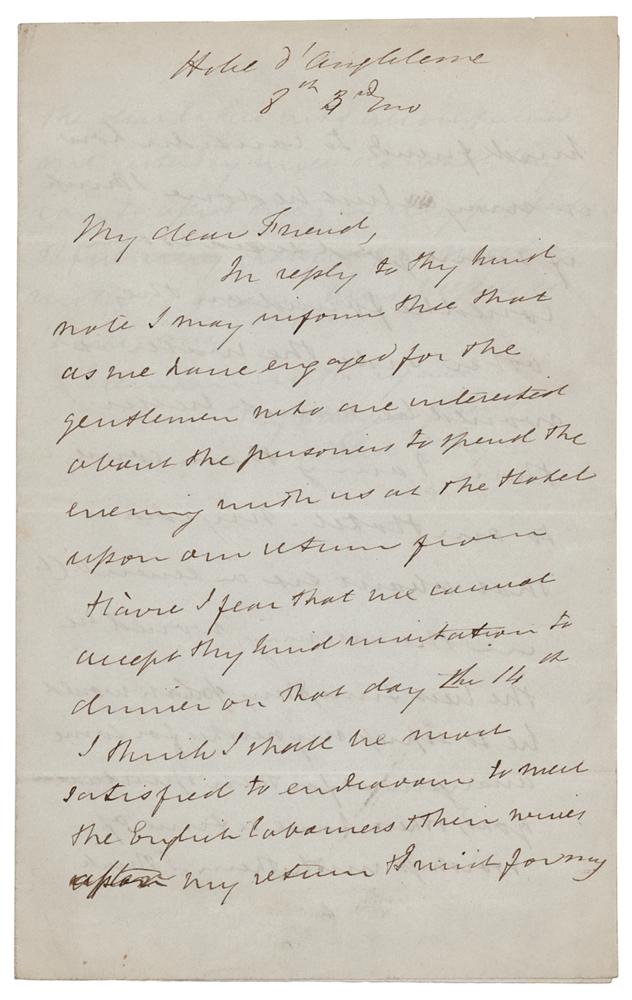 Hotel d'Angleterre
8th 3rd mo
My dear Friend,
In reply to thy kind
note I may inform thee that
as we have engaged for the
gentlemen who are interested
about the prisoners to spend the
evening with us at the Hotel
upon our return from
Havre I fear that we cannot
accept thy kind invitation to
dinner on that day the 14th
I think I shall be most
satisfied to endeavour to meet
the English Labourers & their wives
my return & must for my